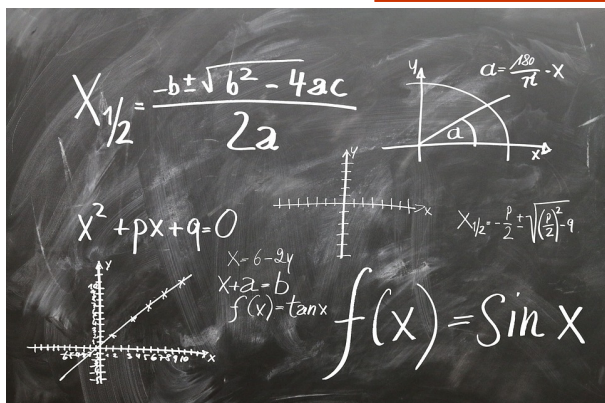 X₁/₂ = (-b ± √(b² - 4ac)) / 2a
y
a = 180/π · x
a
x
y
x
x² + px + q = 0
X₁/₂ = -p/2 ± √((p/2)² - q)
X = 6 - 2y
x + a = b
f(x) = tanx
f(x) = Sin x
y
x